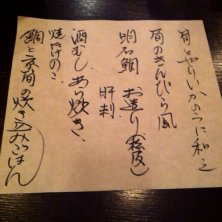 筍とやりいかのうに和え
筍のきんぴら風
明石鯛 お造り(松皮)
肝刺
酒むし、あら炊き、
焼たけのこ
鯛と京筍の炊き込みごはん